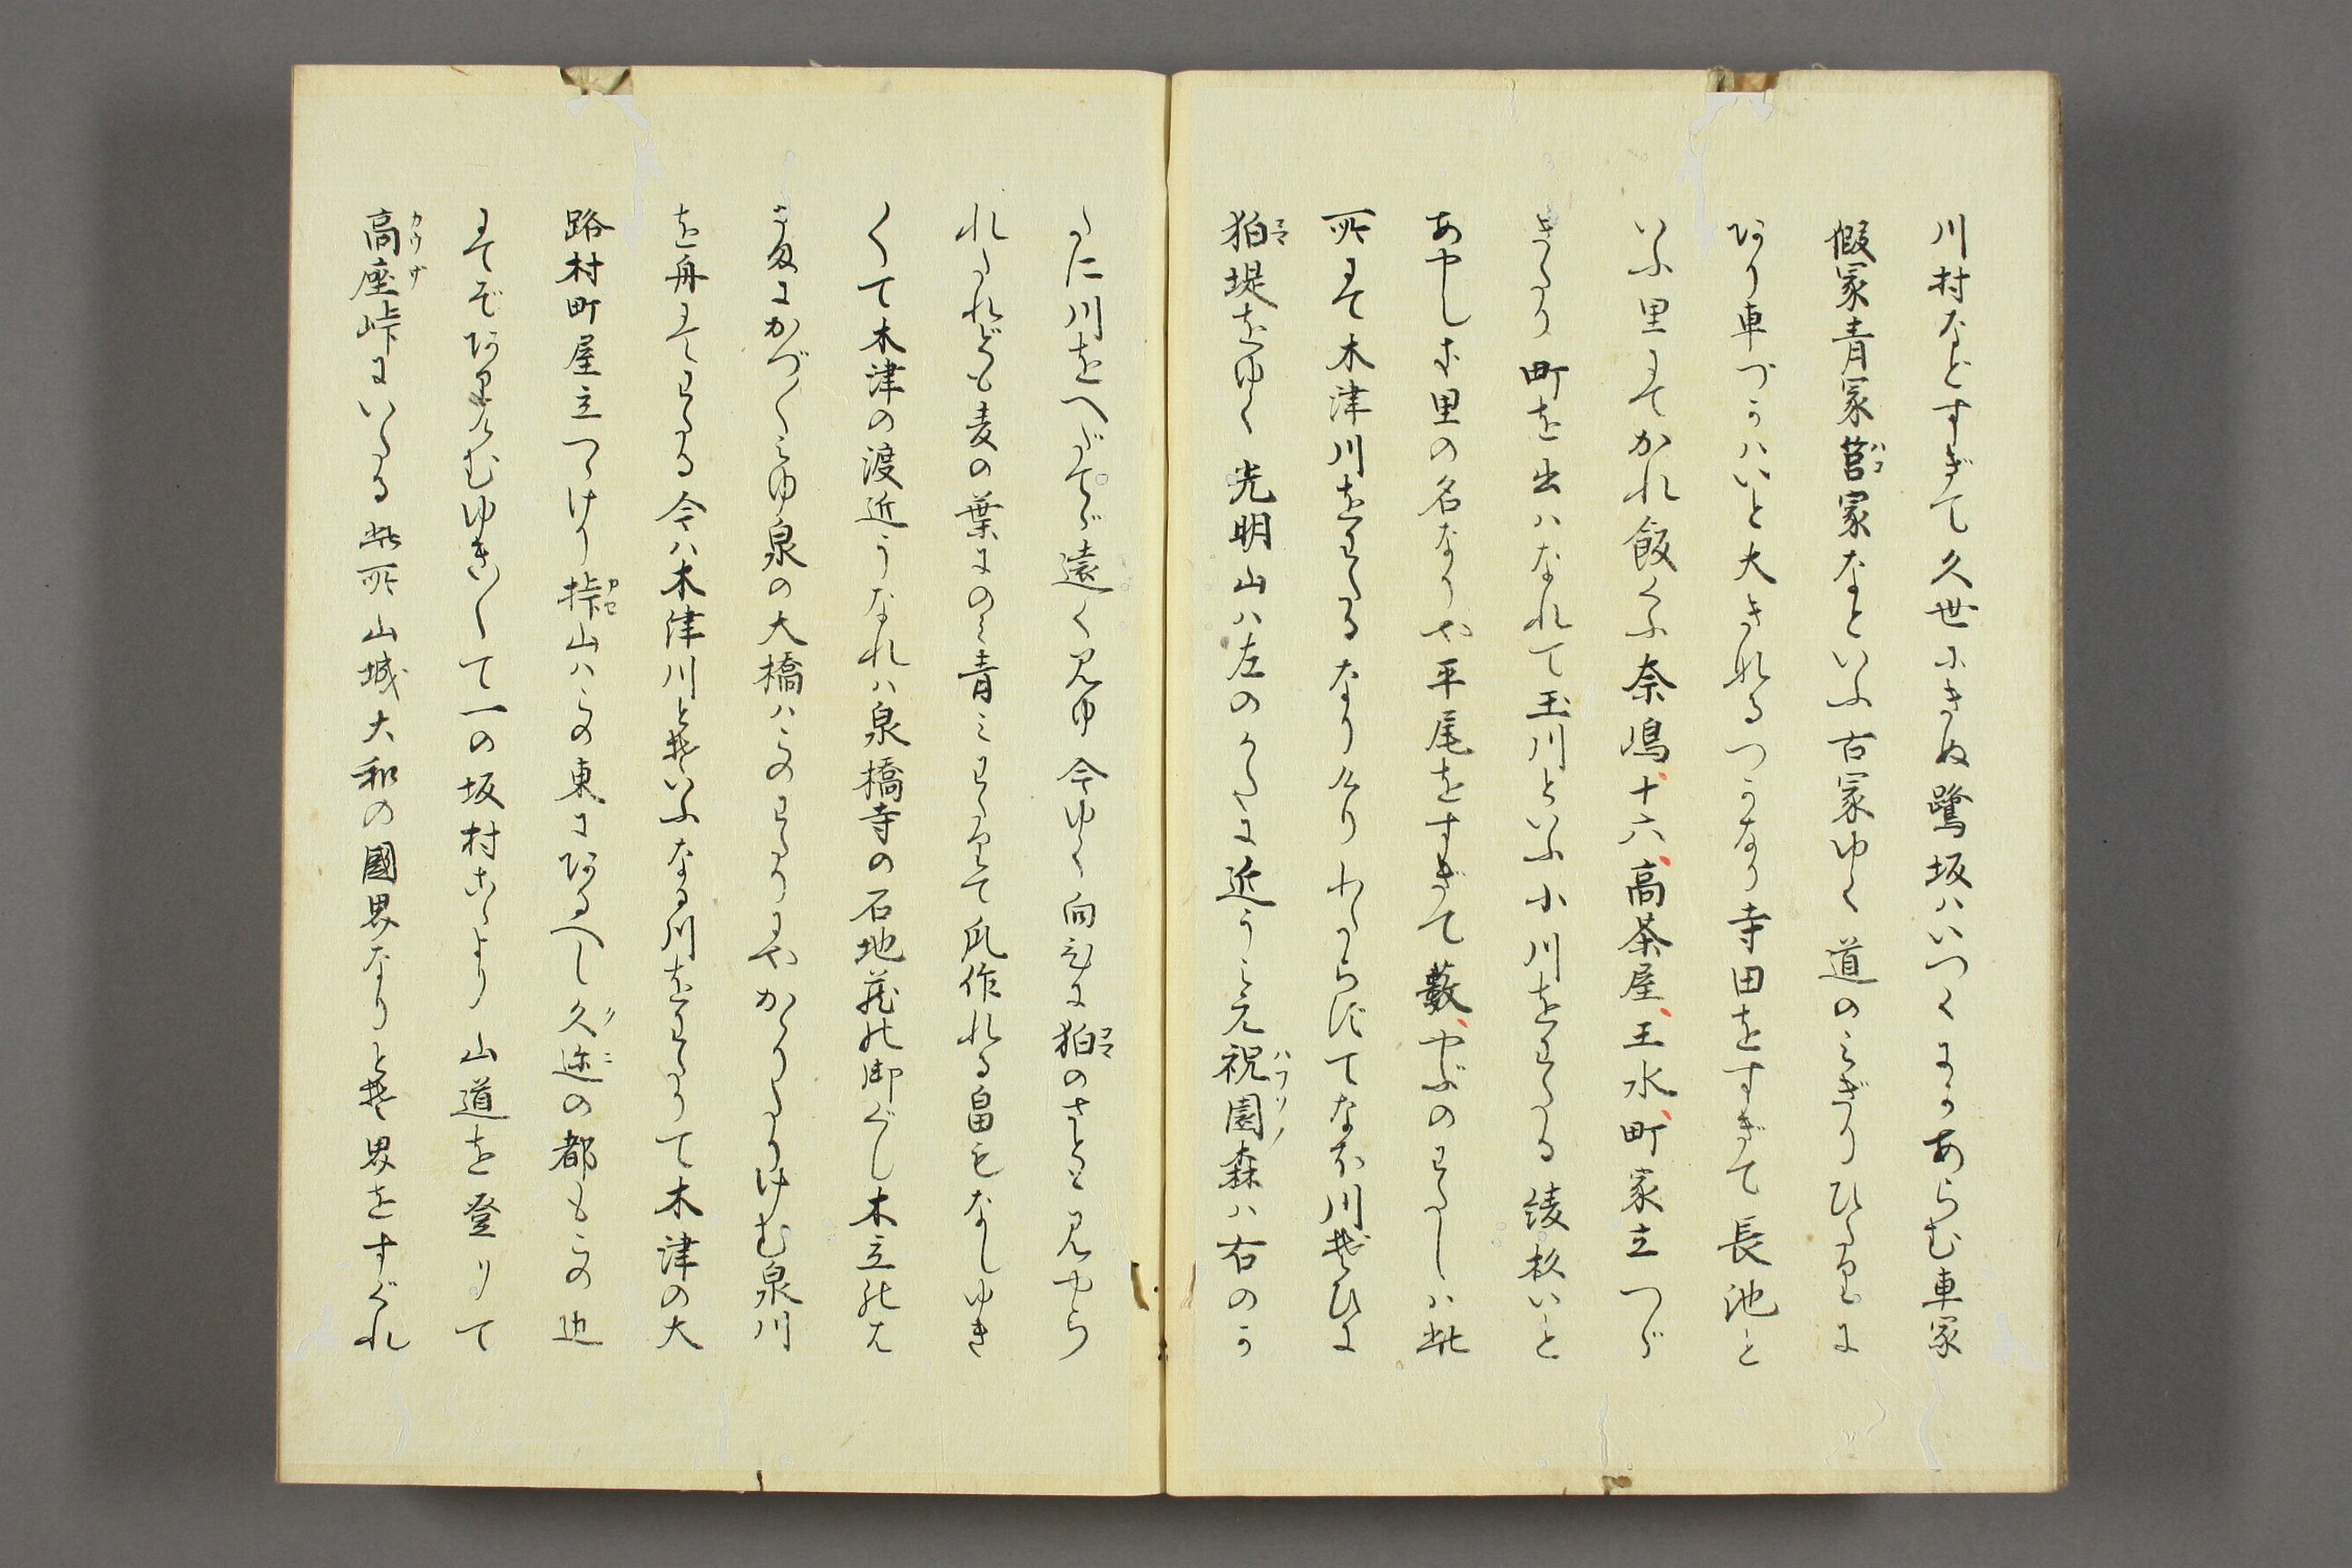 川村などすぎて久世にきぬ鷺坂ハいつくにかあらむ車冢
假冢青冢筥冢なといふ古冢ゆく道のみぎりひたりに
あり車づかハいと大きなるつかなり寺田をすぎて長池と
いふ里にてかれ飯くふ奈嶋、十六、高茶屋、玉水、町家立つゞ
きたり町を出ハなれて玉川といふ小川をわたる綾杉いと
あやしき里の名なりや平尾をすぎて藪、やぶのわたしハ此
所にて木津川をわたるなりけりわたらずてなほ川ぞひに
狛堤をゆく光明山ハ左のかたに近うみえ祝園森ハ右のか
たに川をへだてゝ遠く見ゆ今ゆく向ひに狛のさとゝ見やら
れたれども麦の葉にのみ青みわたりて瓜作れる畠もなしゆき
〳〵て木津の渡近うなれハ泉橋寺の石地蔵の御ぐし木立のは
さまにかづ〳〵みゆ泉の大橋ハこのわたりにやかゝりたりけむ泉川
を舟にてわたる今ハ木津川とぞいふなる川をわたりて木津の大
路村町屋立つゝけり挊山ハこの東にあるへし久迩の都もこの辺
にてぞありけむゆき〳〵て一の坂村こゝより山道を登りて
高座峠にいたる此所山城大和の國界なりとぞ界をすぐれ
カウザ
カセ
クニ
コマ
ハコ
コマ
ハフリノ